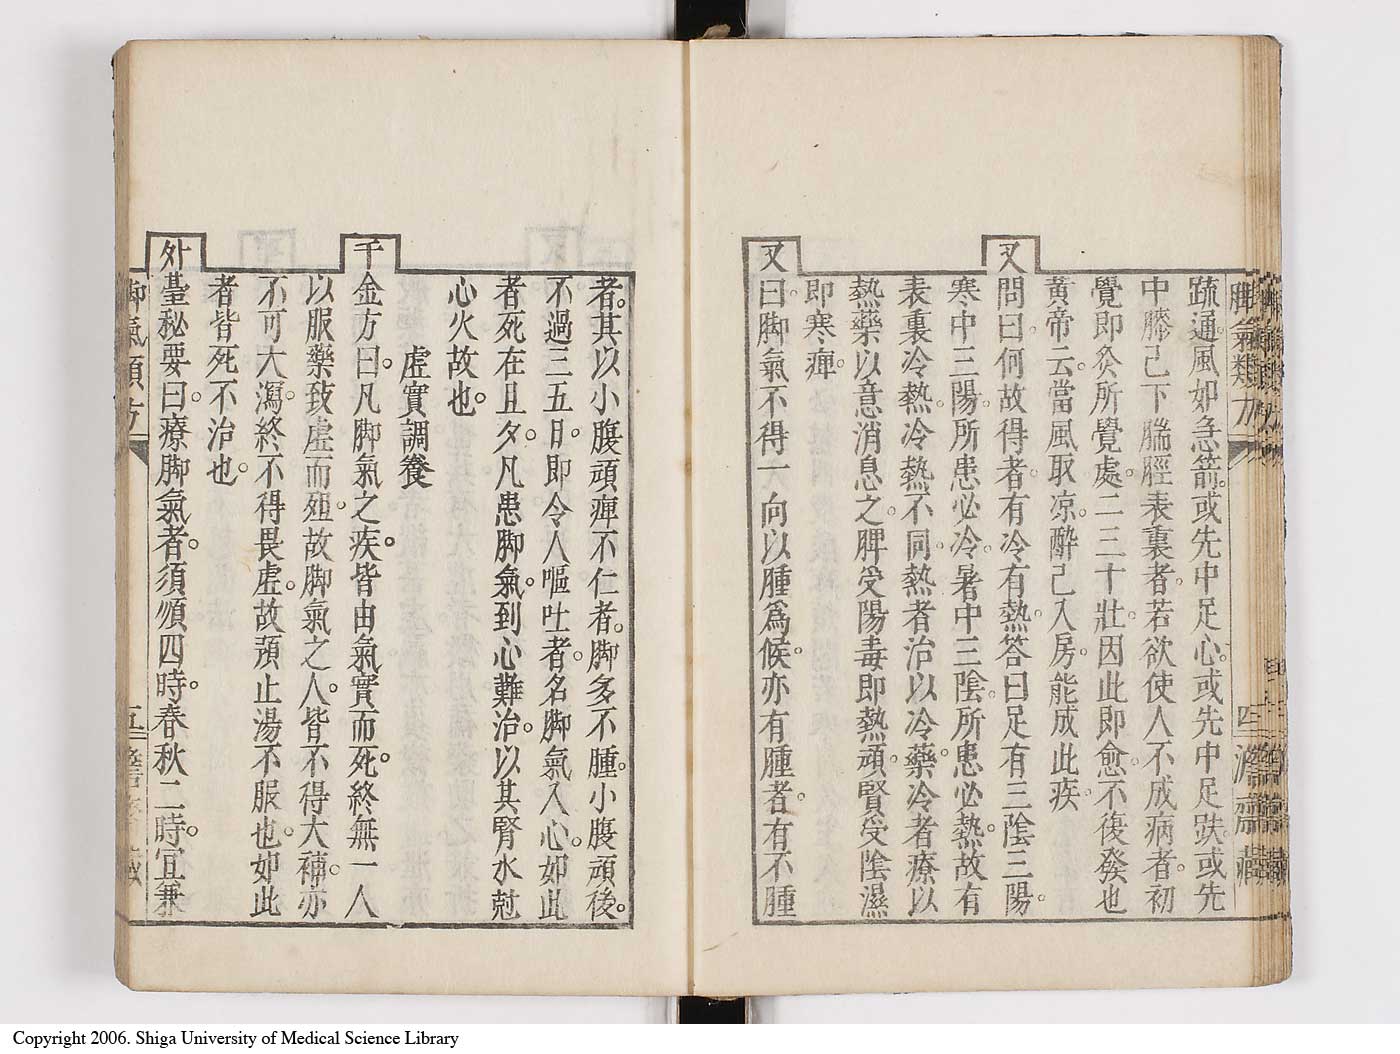 脚氣類方 四 澹齋藏
疏通。風如急箭。或先中足心。或先中足趺。或先
中膝已下腨脛表裏者。若欲使人不成病者。初
覺即灸所覺處。二三十壯。因此即愈。不復發也
黄帝云。當風取凉。醉已入房。能成此疾。
又問曰。何故得者。有冷有熱。答曰足有三陰三陽。
寒中三陽。所患必冷。暑中三陰。所患必熱。故有
表裏冷熱。冷熱不同。熱者治以冷藥。冷者療以
熱藥。以意消息之。脾受陽毒即熱頑。腎受陰濕
即寒痺。
又曰。脚氣不得一向以腫爲候。亦有腫者。有不腫
者。其以小腹頑痺不仁者。脚多不腫。小腹頑後。
不過三五日。即令人嘔吐者。名脚氣入心。如此
者死在旦夕。凡患脚氣。到心難治。以其腎水尅
心火故也。
虛實調養
千金方曰。凡脚氣之疾。皆由氣實而死。終無一人
以服藥致虛而殂。故脚氣之人。皆不得大補。亦
不可大瀉。終不得畏虛。故預止湯不服也。如此
者皆死不治也。
外臺秘要曰。療脚氣者。須順四時。春秋二時。宜兼
脚氣類方 五
Copyright 2006. Shiga University of Medical Science Library